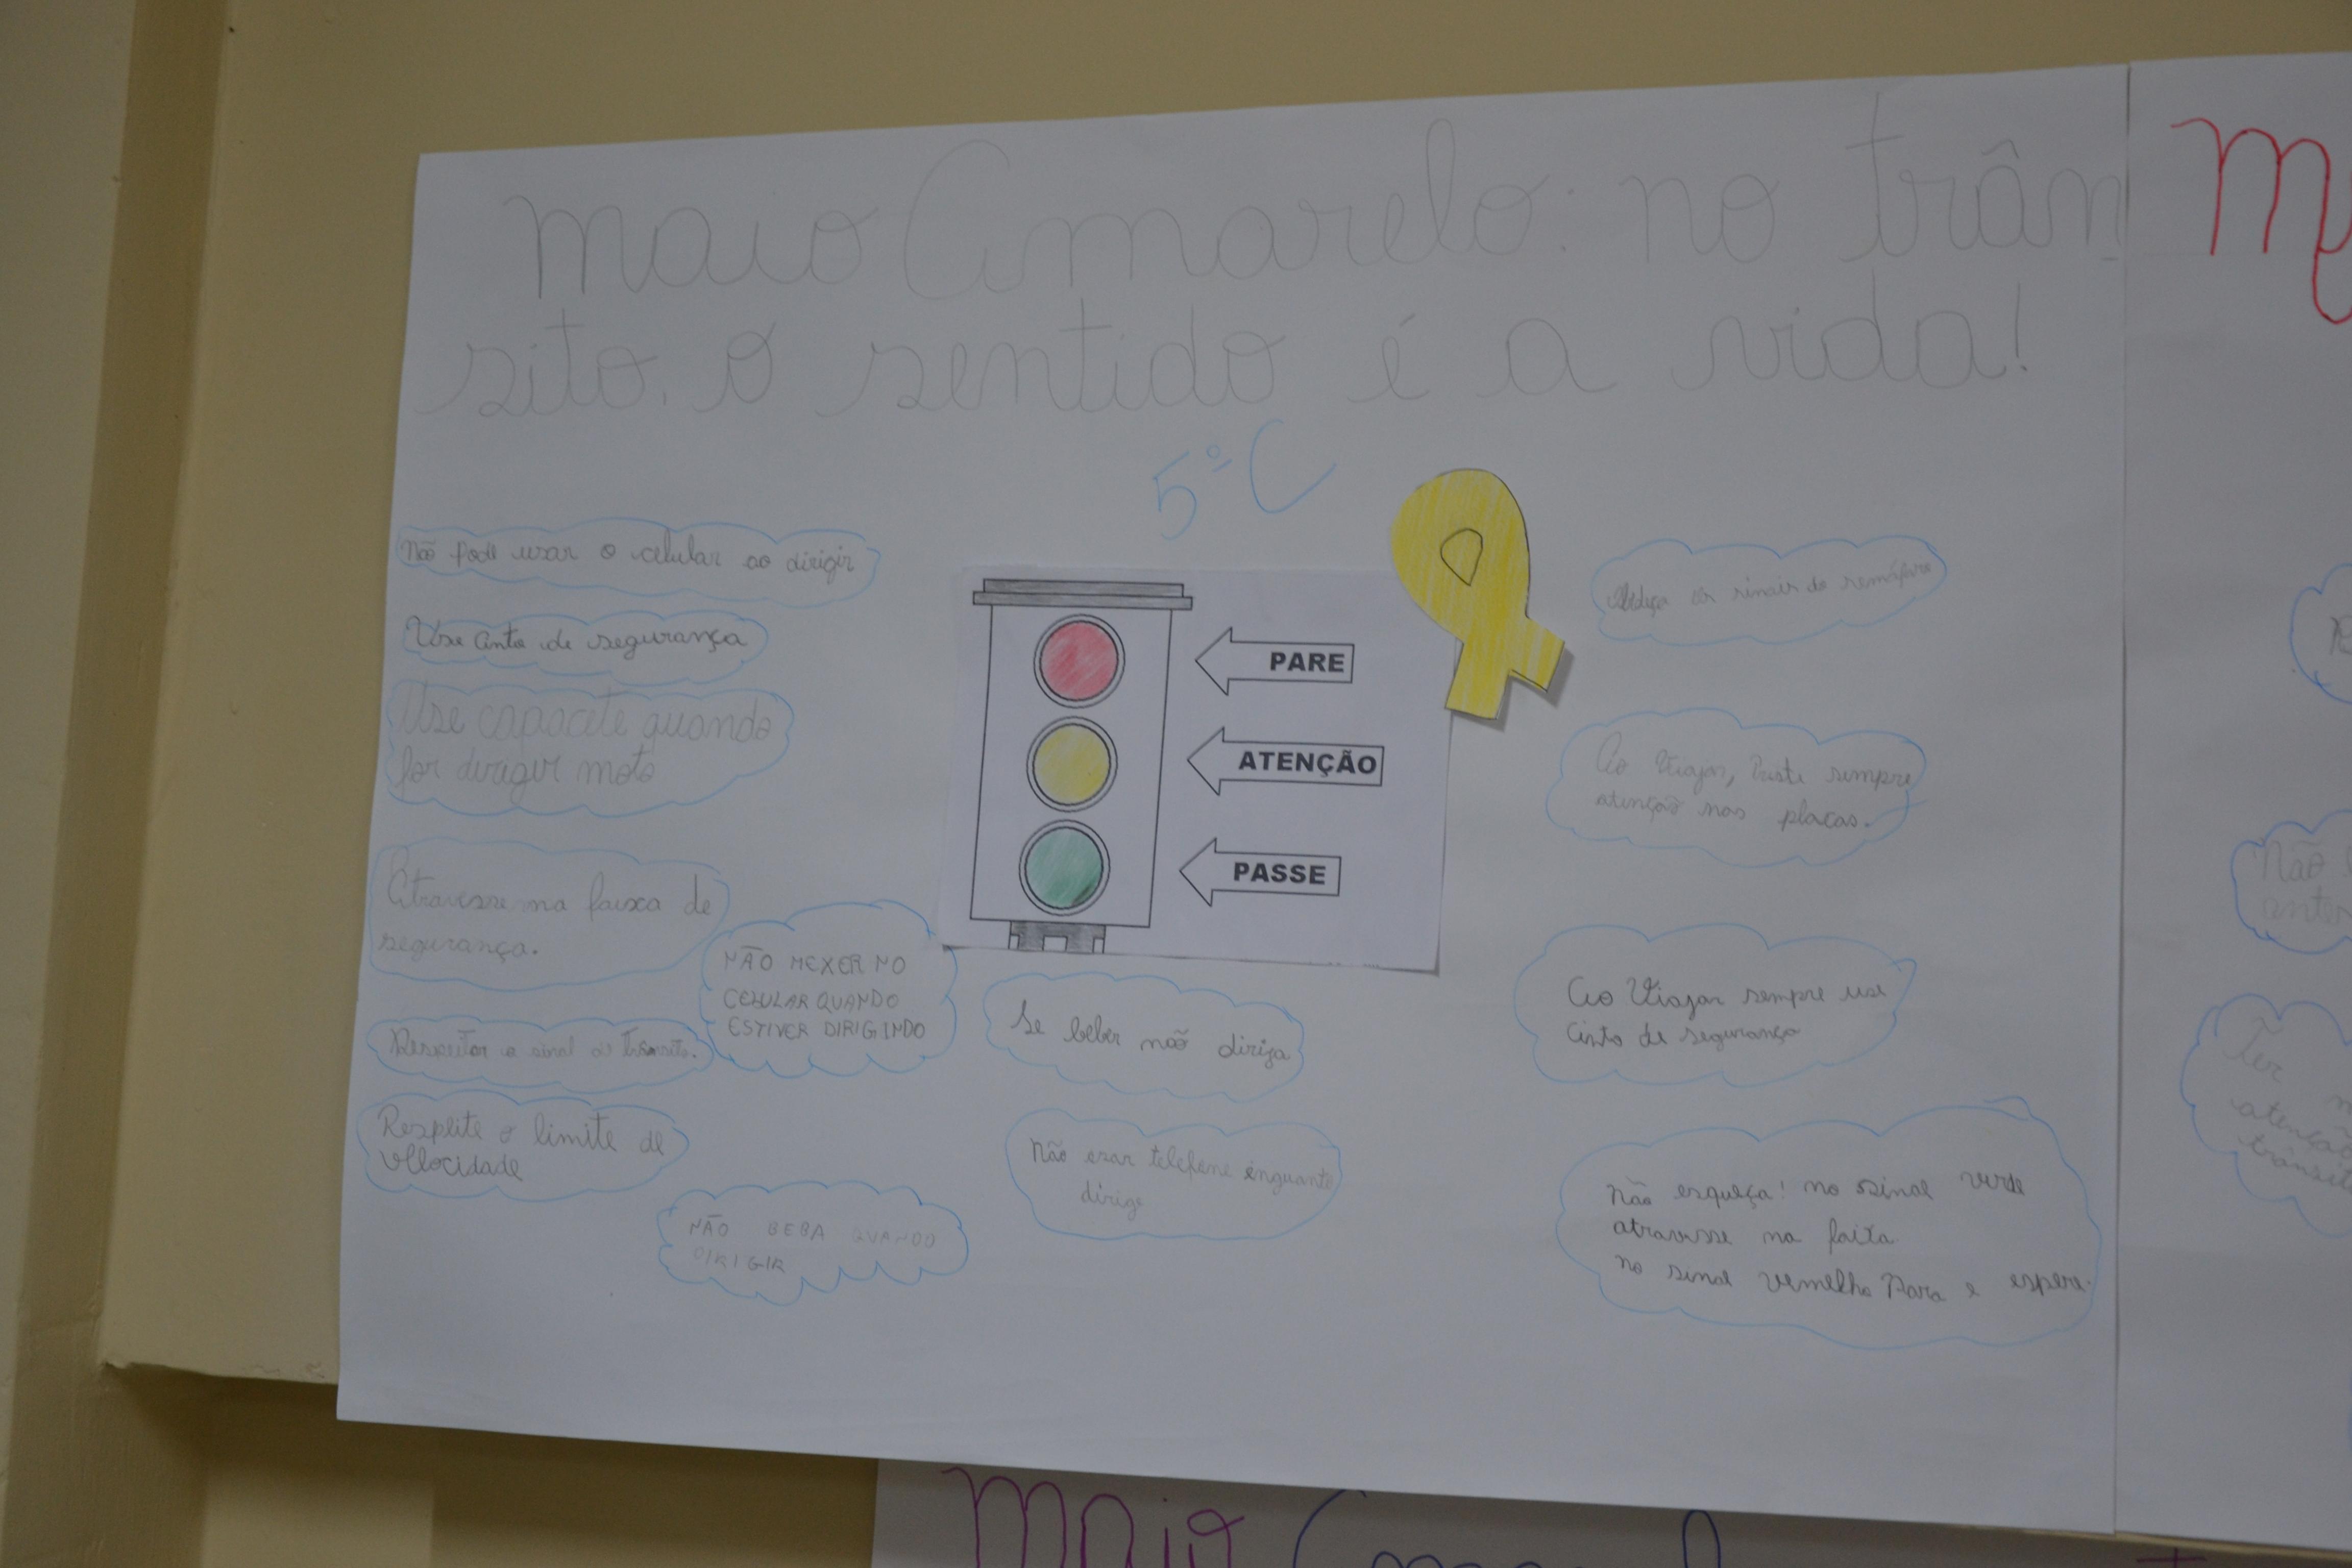 Maio Amarelo: no trân-
sito, o sentido é a vida!
5º C
Não pode usar o celular ao dirigir
Use cinto de segurança
Use capacete quando
for dirigir moto
Atravesse na faixa de
segurança.
Respeitar o sinal de trânsito.
Respeite o limite de
velocidade
NÃO MEXER NO
CELULAR QUANDO
ESTIVER DIRIGINDO
NÃO BEBA QUANDO
DIRIGIR
PARE
ATENÇÃO
PASSE
Se beber não dirija
Não usar telefone enquanto
dirige
os sinais do semáforo
Ao Viajar, Preste sempre
atenção nas placas.
Ao Viajar sempre use
cinto de segurança
Não esqueça! no sinal verde
atravesse na faixa
no sinal vermelho Para e espere.
M
Não
antes
Ter
atenção
trânsito
Maio